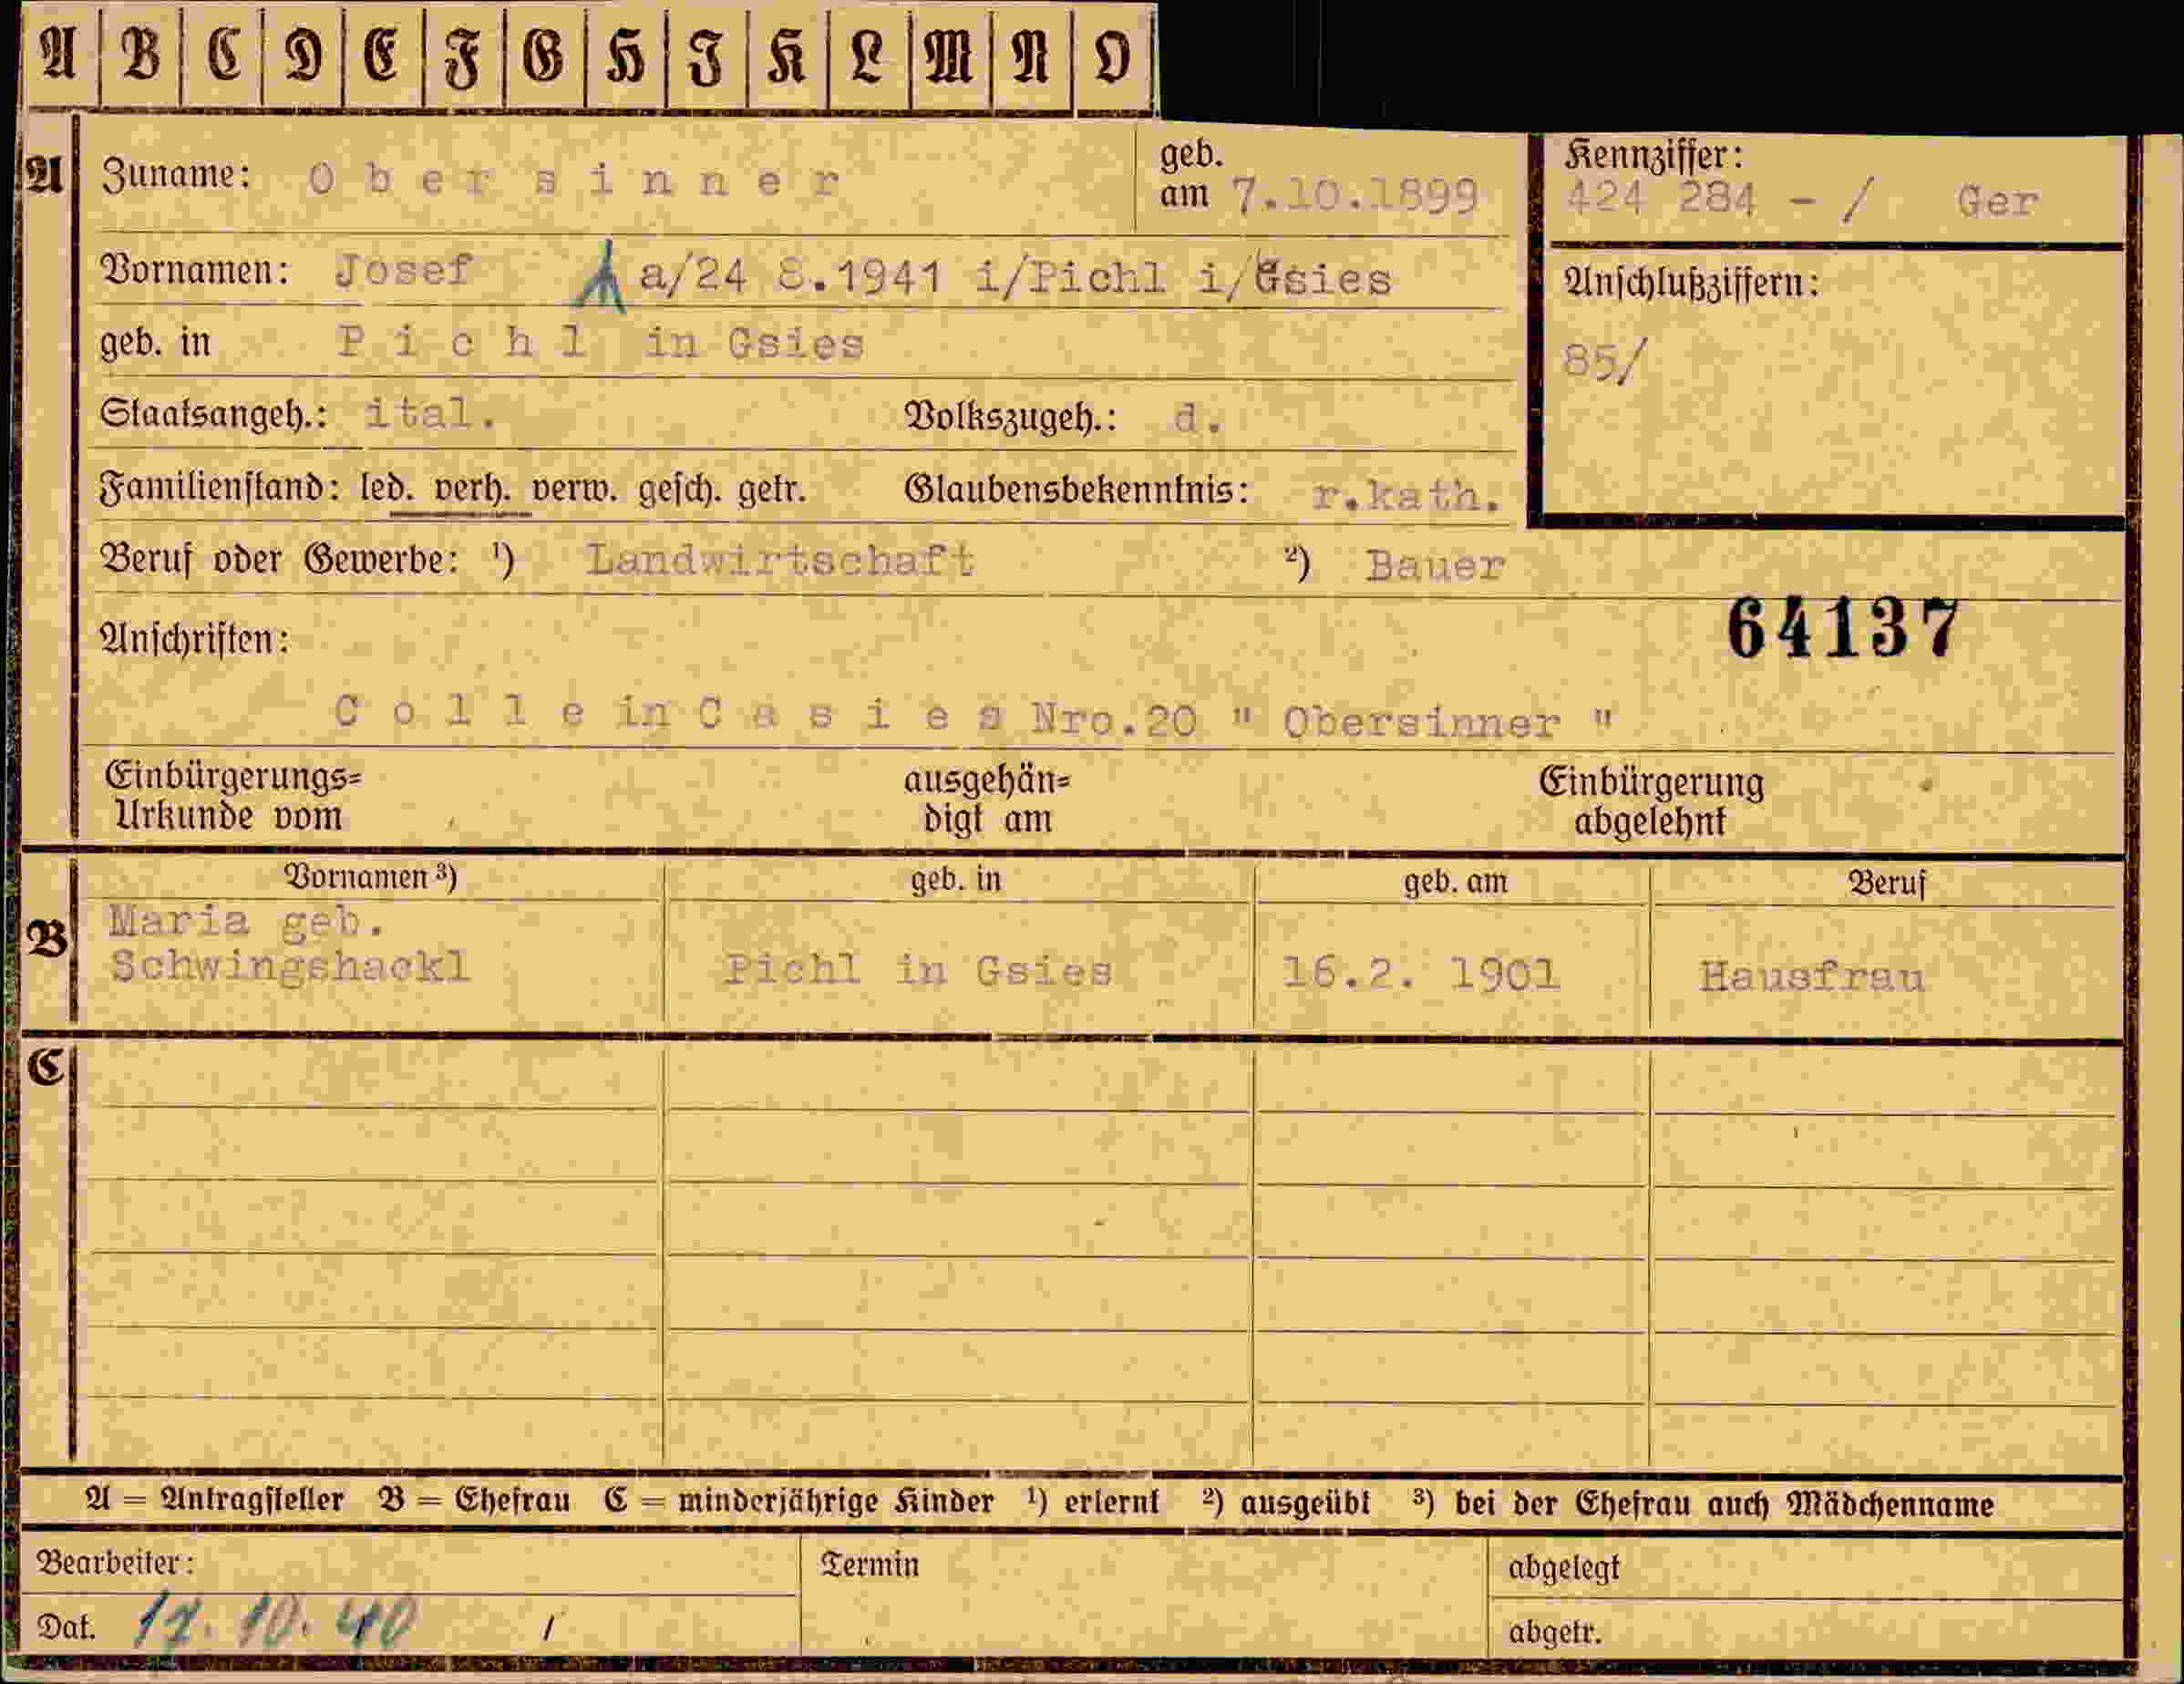 A B C D E F G H I K L M N O
A Zuname: O b e r s i n n e r geb. am 7.10.1899 Kennziffer: 424 284 - / Ger
Vornamen: Josef a/24 8.1941 i/Pichl i/Gsies Anschlußziffern:
geb. in P i c h l in Gsies 85/
Staatsangeh.: ital. Volkszugeh.: d.
Familienstand: led. verh. verw. gesch. getr. Glaubensbekenntnis: r.kath.
Beruf oder Gewerbe: ¹) Landwirtschaft ²) Bauer
Anschriften: 64137
C o l l e in C a s i e s Nro.20 " Obersinner "
Einbürgerungs= ausgehän= Einbürgerung
Urkunde vom digt am abgelehnt
Vornamen ³) geb. in geb. am Beruf
B Maria geb.
Schwingshackl Pichl in Gsies 16.2. 1901 Hausfrau
C
A = Antragsteller B = Ehefrau C = minderjährige Kinder ¹) erlernt ²) ausgeübt ³) bei der Ehefrau auch Mädchenname
Bearbeiter: Termin abgelegt
Dat. 17.10.40 / abgetr.